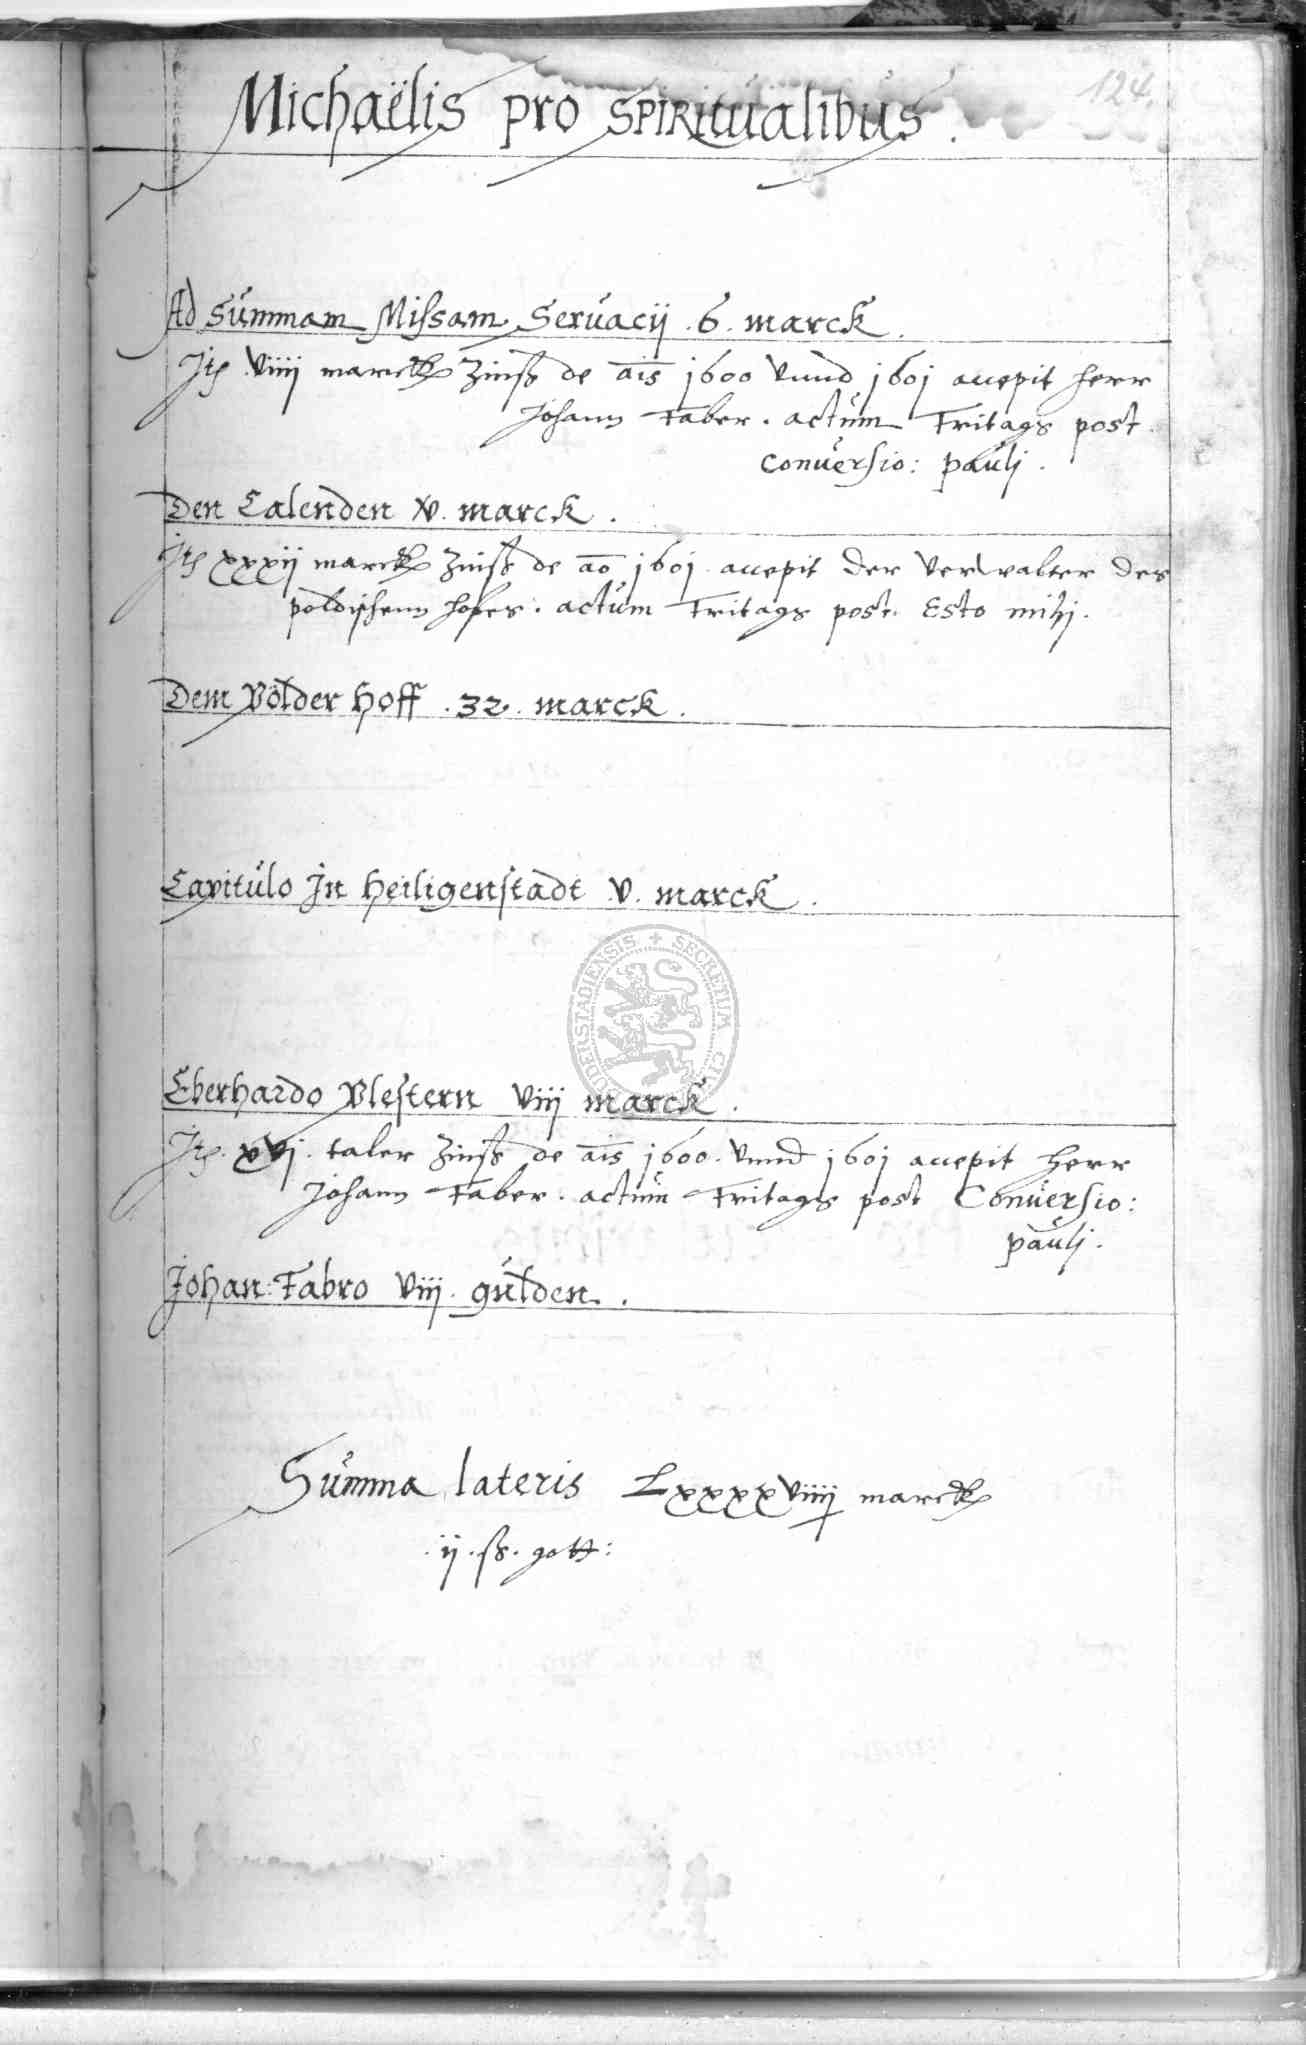 124.
Michaëlis pro SPIRITUALIBUS.
Ad Summam Missam Servacij .6. marck.
Jt viiij marck Zinß de ais 1600 vnnd 1601 accepit herr
Johann Faber. actum Fritags post
Conversio: paulj.
Den Calenden XV. marck.
Jt xxxij marck Zinß de ao 1601. accepit der Verwalter des
poldischenn hofes. actum Fritags post. Esto mihj.
Dem Pölder Hoff .32. marck.
Capitulo Jn Heiligenstadt V. marck.
Eberhardo Vlestern viij marck.
Jt. xvj. taler Zinß de ais 1600. vnnd 1601 accepit herr
Johann Faber. actum Fritags post Conversio:
paulj.
Johan: Fabro viij. gulden.
Summa lateris Lxxxxviiij marck
.ij. ß. gott:
SECRETUM